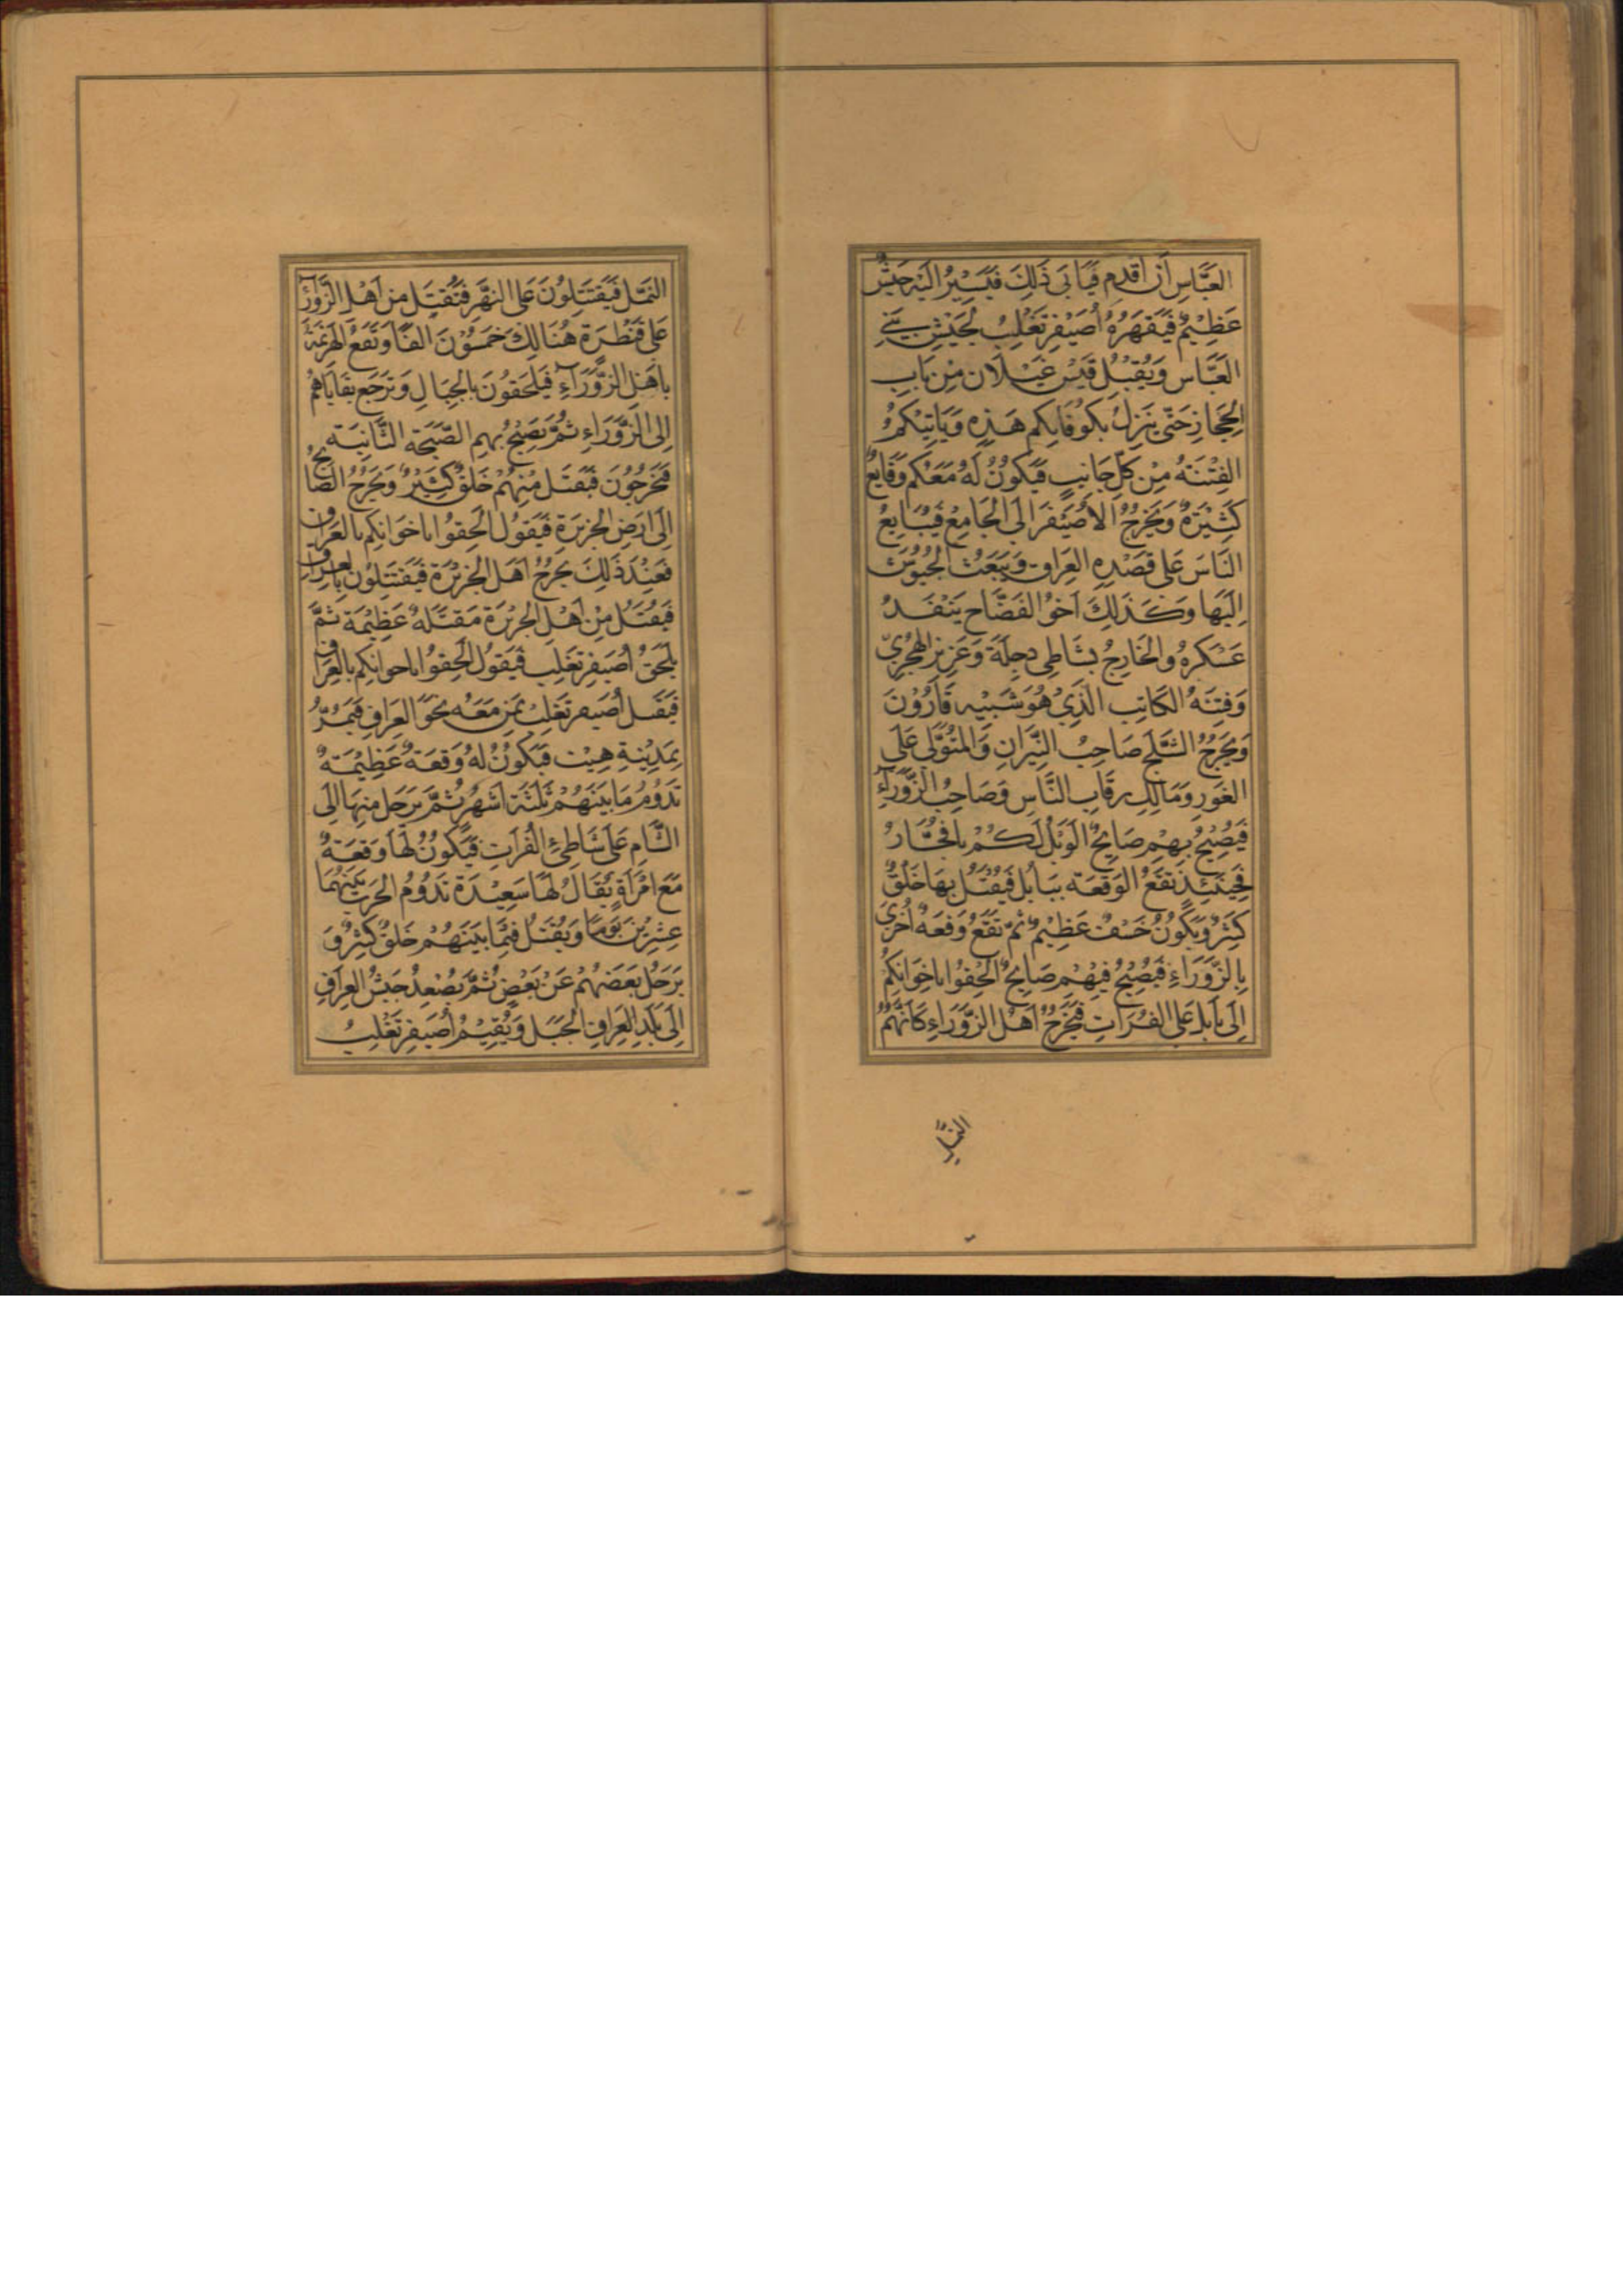 العَبَّاسِ أَن اَقدِم فَيَابَى ذَلِكَ فَيَسِيْرُ اِلَيْهِ جَيْشٌ
عَظِيْمٌ فَيَقهَرُهُ أُصَيْفِر تَغْلِبُ لِجَيْشِ بَنِي
العَبَّاس وَيُقبِلُ قَيْس غَيْلَان مِن بَابِ
الحِجَازِ حَتّى يَنزِلُ بِكُوفَانِكم هَذِهِ وَيَاتِيْكُمُ
الفِتْنَةُ مِنْ كُلِّ جَانِبٍ فَيَكُونُ لَهُ مَعَكُم وَقَايِعُ
كَثِيْرَةٌ وَيَخْرُجُ الأُصَيْفَرَ الَى الجَامِعُ فَيُبَايِعُ
النَّاسَ عَلى قَصْدِهِ العِرَاقَ وَيَبْعَثُ الجُيُوْشَ
اِلَيْهَا وَكَذَلِكَ اَخُوْ الفَضَّاحِ يَنْفَذُ
عَسْكَرَهُ وَالخَارِجُ بشَاطِي دِجلَةَ وَعَزِيز الهَجَرِيّ
وَفِتنَهُ الكَاتِبِ الَّذِيْ هُوَ شَبِيْه قَارُوْنَ
وَيَخْرُجُ الثَّلج صَاحِبُ النِّيْرَانِ وَالمُتَوَلّى عَلَى
الغَورِ وَمَالِكِ رِقَابِ النَّاسِ وَصَاحِبُ الزَّوْرَاءِ
فَيَصِيْحُ بِهِمْ صَايِحٌ الوَيْلُ لَكُمْ يَا فُجَّارُ
فَحِيْنَئِذٍ تقَعُ الوَقعَة بِبَابُل فَيُقْتَلُ بِهَا خَلْقٌ
كَثِيْرٌ وَيَكُونُ خَسْفٌ عَظِيْمٌ ثمّ تقَعُ وَقعَهٌ اُخْرَى
بِالزَّوْرَاءِ فَيَصِيْحُ فِيْهِمْ صَايحٌ الحِقُوا بِاخوَانِكُمْ
اِلَى بَابلَ عَلى الفُرَاتِ فَيَخْرُجُ اَهْلُ الزَّوْرَاءِ كَاَنَّهُمُ
النَّمْلُ
النَّمْل فَيَقْتَتِلُوْنَ عَلى النَّهْرِ فَتُقتَلُ مِن اَهْلِ الزَّوْرَاءِ
عَلى قَنْطَرَة هُنَالِكَ خَمسُوْنَ الفًا وَتَقَعُ الهَزيمَةُ
بِاَهْلِ الزَّوْرَاءِ فَيَلحَقُوْنَ بِالجِبَالِ وَتَرجَع بَقَايَاهُمْ
اِلى الزَّوْرَاءِ ثُمَّ يَصِيْحُ بهم الصَّيْحَة الثَّانِيَةَ
فَيَخرُجُوْنَ فَيُقتَل مِنْهُمْ خَلقٌ كَثِيْرٌ وَيَخرُجُ الصَّايحُ
اِلَى ارضِ الجَزِيرَةِ فَيَقولُ الحِقوُا باخوَانِكم بالعِرَاقِ
فَعِنْدَ ذَلِكَ يَخْرُجُ اَهْلُ الجَزِيْرَة فَيَقْتَتِلُونَ بالعِراقِ
فَيُقتَلُ مِنْ اَهْلِ الجَزِيْرَة مَقتَلَهٌ عَظِيْمَة ثُمَّ
يَلحَقُ أُصَيفِر تَغلِبَ فَيَقوُل الحِقوُا باخوانِكم بالعِرَاق
فَيقبل أُصَيفر تَغلِبُ بمَن مَعَه نَحوَ العِرَاقِ فيَمُرُّ
بِمَدِيْنَةِ هِيْت فَيَكُونُ لَهُ وَقعَةٌ عَظِيْمَةٌ
تَدُوْمُ مَا بَيْنَهُمْ ثَلٰثَةَ اَشْهُرٍ ثُمَّ يَرحَل مِنهَا اِلَى
الشَّام عَلى شَاطِئِ الفُرَاتِ فَيَكُونُ لَهَا وَقعَةٌ
مَعَ امْرَأَةٍ يُقَالُ لَهَا سَعِيْدَة تَدُوْمُ الحَربُ بَيْنَهُمَا
عِشرِيْنَ يَومًا وَيُقتَلُ فِيْمَا بَيْنَهُمْ خَلقٌ كَثِيْرٌ وَ
يَرحَلُ بَعضَهُمْ عَنْ بَعْضٍ ثُمَّ يَصْعدُ جَيْشُ العِرَاقِ
اِلَى بَلَدِ العِرَاقِ الجَبَل وَيُقِيْمُ أُصَيفِر تَغْلِبُ